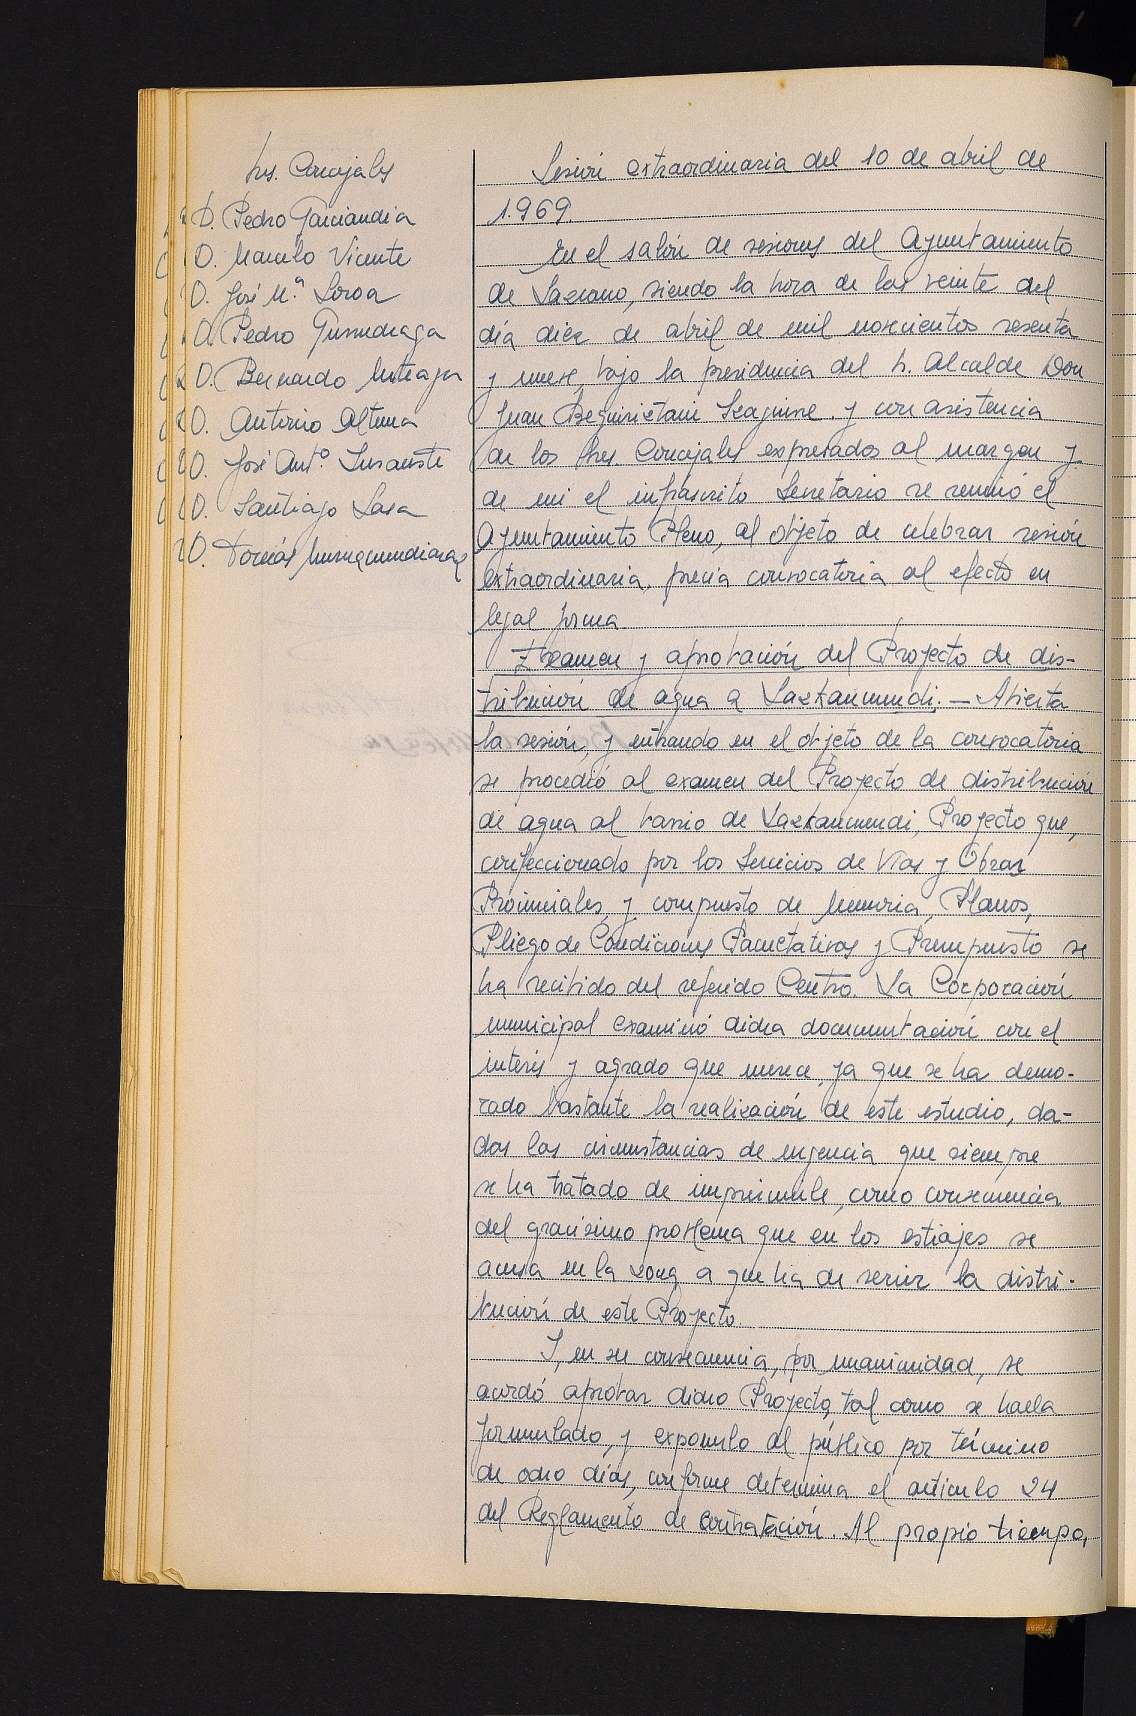 Sres. Concejales
D. Pedro Garciandia
D. Marcelo Vicente
D. José Mª Loroa
D. Pedro
D. Bernardo
D. Antonio Altuna
D. José Antº Insausti
D. Santiago Lasa
D. Tomás
Sesión extraordinaria del 10 de abril de
1.969.
En el salón de sesiones del Ayuntamiento
de Lazcano, siendo la hora de las veinte del
día diez de abril de mil novecientos sesenta
y nueve, bajo la presidencia del Sr. Alcalde Don
Juan Beguiristain Izaguirre y con asistencia
de los Sres. Concejales expresados al margen y
de mi el infrascrito Secretario se reunió el
Ayuntamiento Pleno, al objeto de celebrar sesión
extraordinaria, previa convocatoria al efecto en
legal forma
Examen y aprobación del Proyecto de dis-
tribución de agua a Lazkaumendi. — Abierta
la sesión, y entrando en el objeto de la convocatoria
se procedió al examen del Proyecto de distribución
de agua al barrio de Lazkaumendi, Proyecto que,
confeccionado por los Servicios de Vías y Obras
Provinciales, y compuesto de Memoria, Planos,
Pliego de Condiciones Facultativas y Presupuesto se
ha recibido del referido Centro. La Corporación
municipal examinó dicha documentación con el
interés y agrado que merece, ya que se ha demo-
rado bastante la realización de este estudio, da-
das las circunstancias de urgencia que siempre
se ha tratado de imprimirle, como consecuencia
del gravísimo problema que en los estiajes se
acusa en la zona a que ha de servir la distri-
bución de este Proyecto.
Y, en su consecuencia, por unanimidad, se
acordó aprobar dicho Proyecto, tal como se halla
formulado, y exponerlo al público por término
de ocho días, conforme determina el artículo 24
del Reglamento de Contratación. Al propio tiempo,